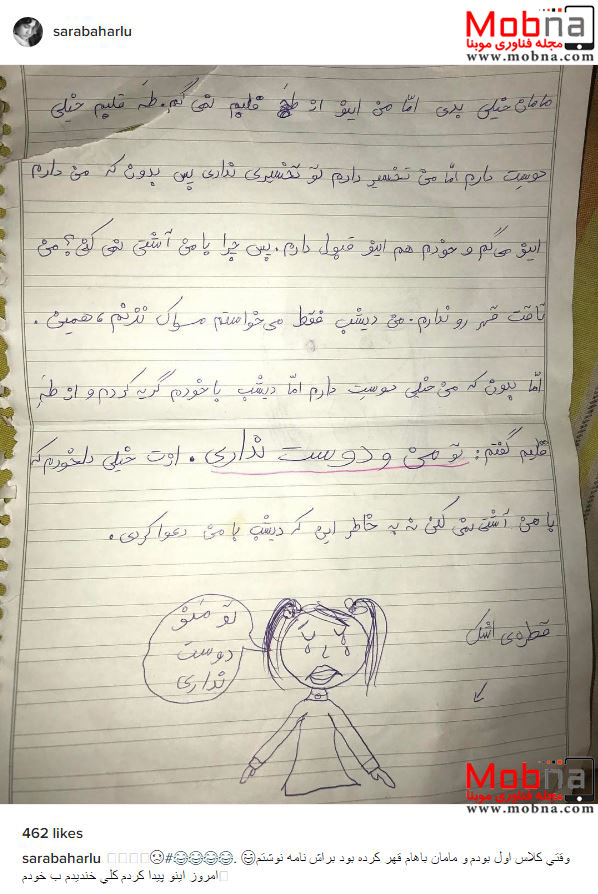 sarabaharlu
Mobna
مجله فناوری موبنا
www.mobna.com
مامان خیلی بدی امّا من اینو از طَهِ قلبم نمی گم. طهَ قلبم خیلی
دوست دارم امّا من تخسیر دارم تو تخسیری نداری پس بدون که من دارم
اینو می‌گم و خودم هم اینو قبول دارم. پس چرا با من آشتی نمی کنی؟ من
تاقت قهر رو ندارم. من دیشب فقط می‌خواستم مسواک نزنم، همین.
امّا بدون که من خیلی دوست دارم امّا دیشب با خودم گریه کردم و از طهَ
قلبم گفتم: تو من و دوست نداری. ازت خیلی دلخورم که
با من آشتی نمی کنی نه به خاطر این که دیشب با من دعوا کردی.
تو مَنو
دوست
نداری
قطره‌ی اشک
Mobna
مجله فناوری موبنا
www.mobna.com
462 likes
sarabaharlu ☹#😂😂😂😂. 😄وقتي كلاس اول بودم و مامان باهام قهر كرده بود براش نامه نوشتم
امروز اينو پيدا كردم كلّي خنديدم ب خودم